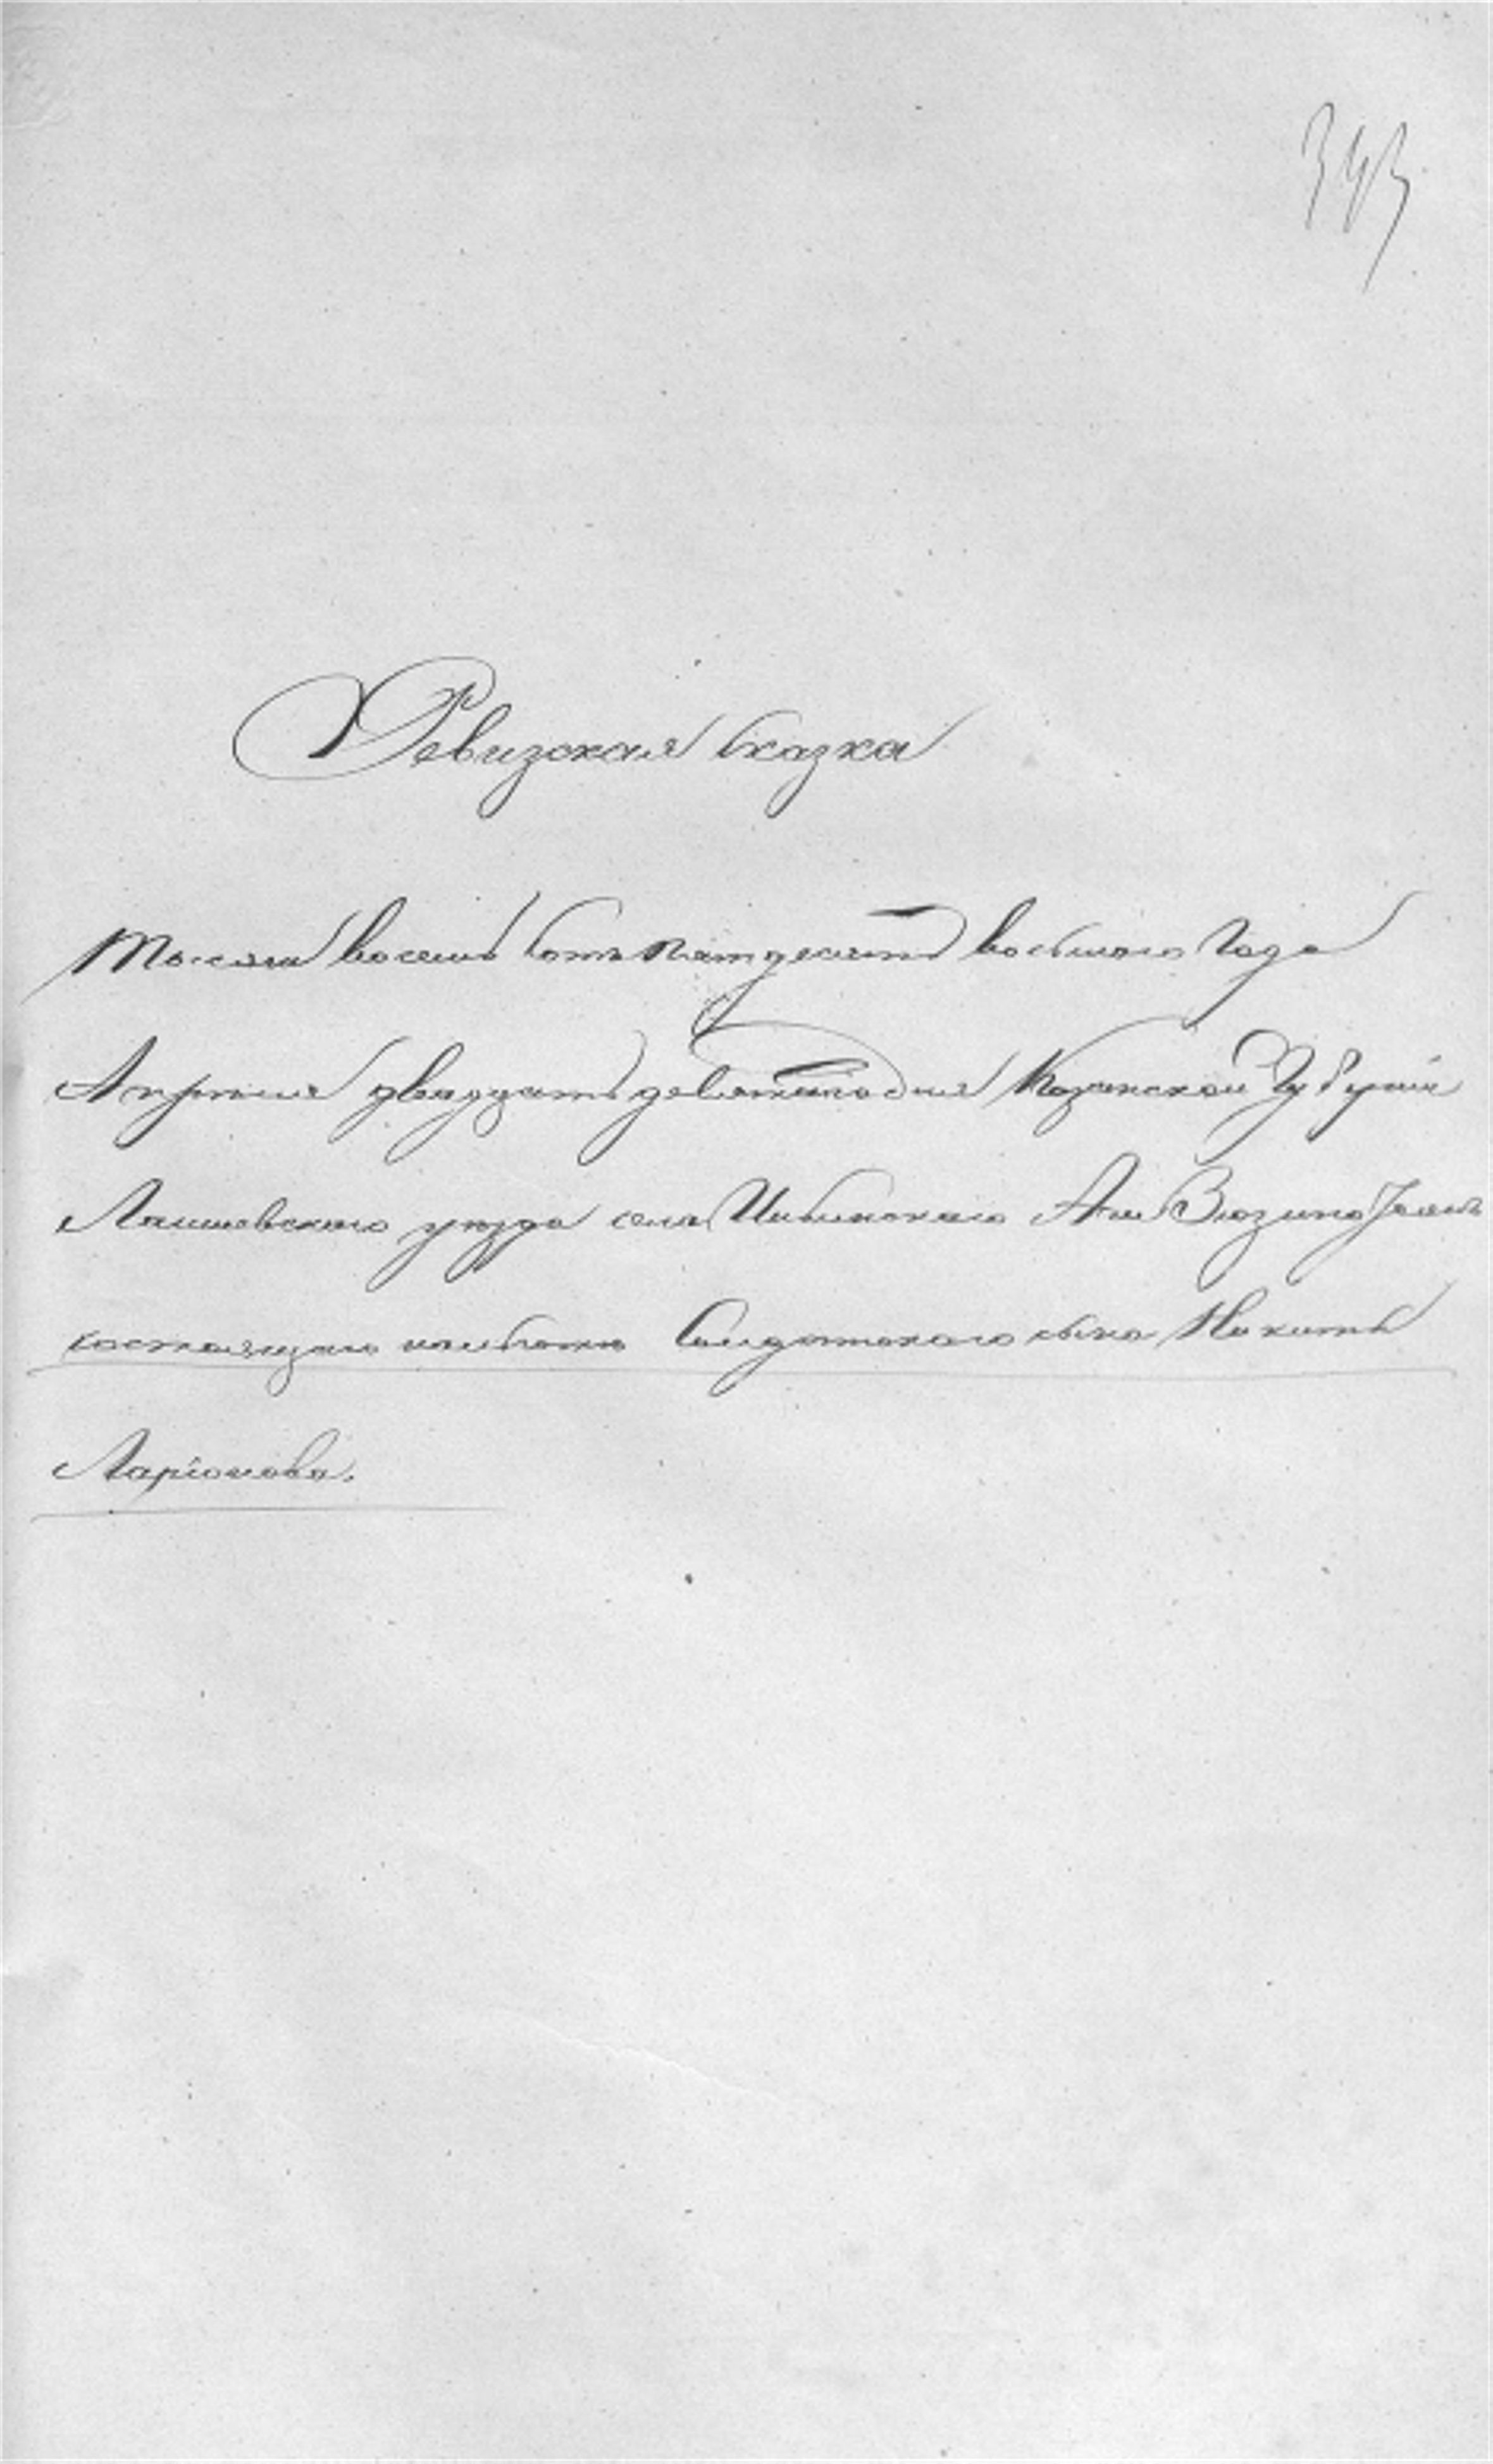 343
Ревизская Сказка
Тысяча восемь сотъ пятдесятъ восьмаго Года
Апреля двадцать девятаго дня Казанской Губерніи
Лаишевскаго уезда села
состоящаго Солдатскаго сына Никиты
Ларіонова.